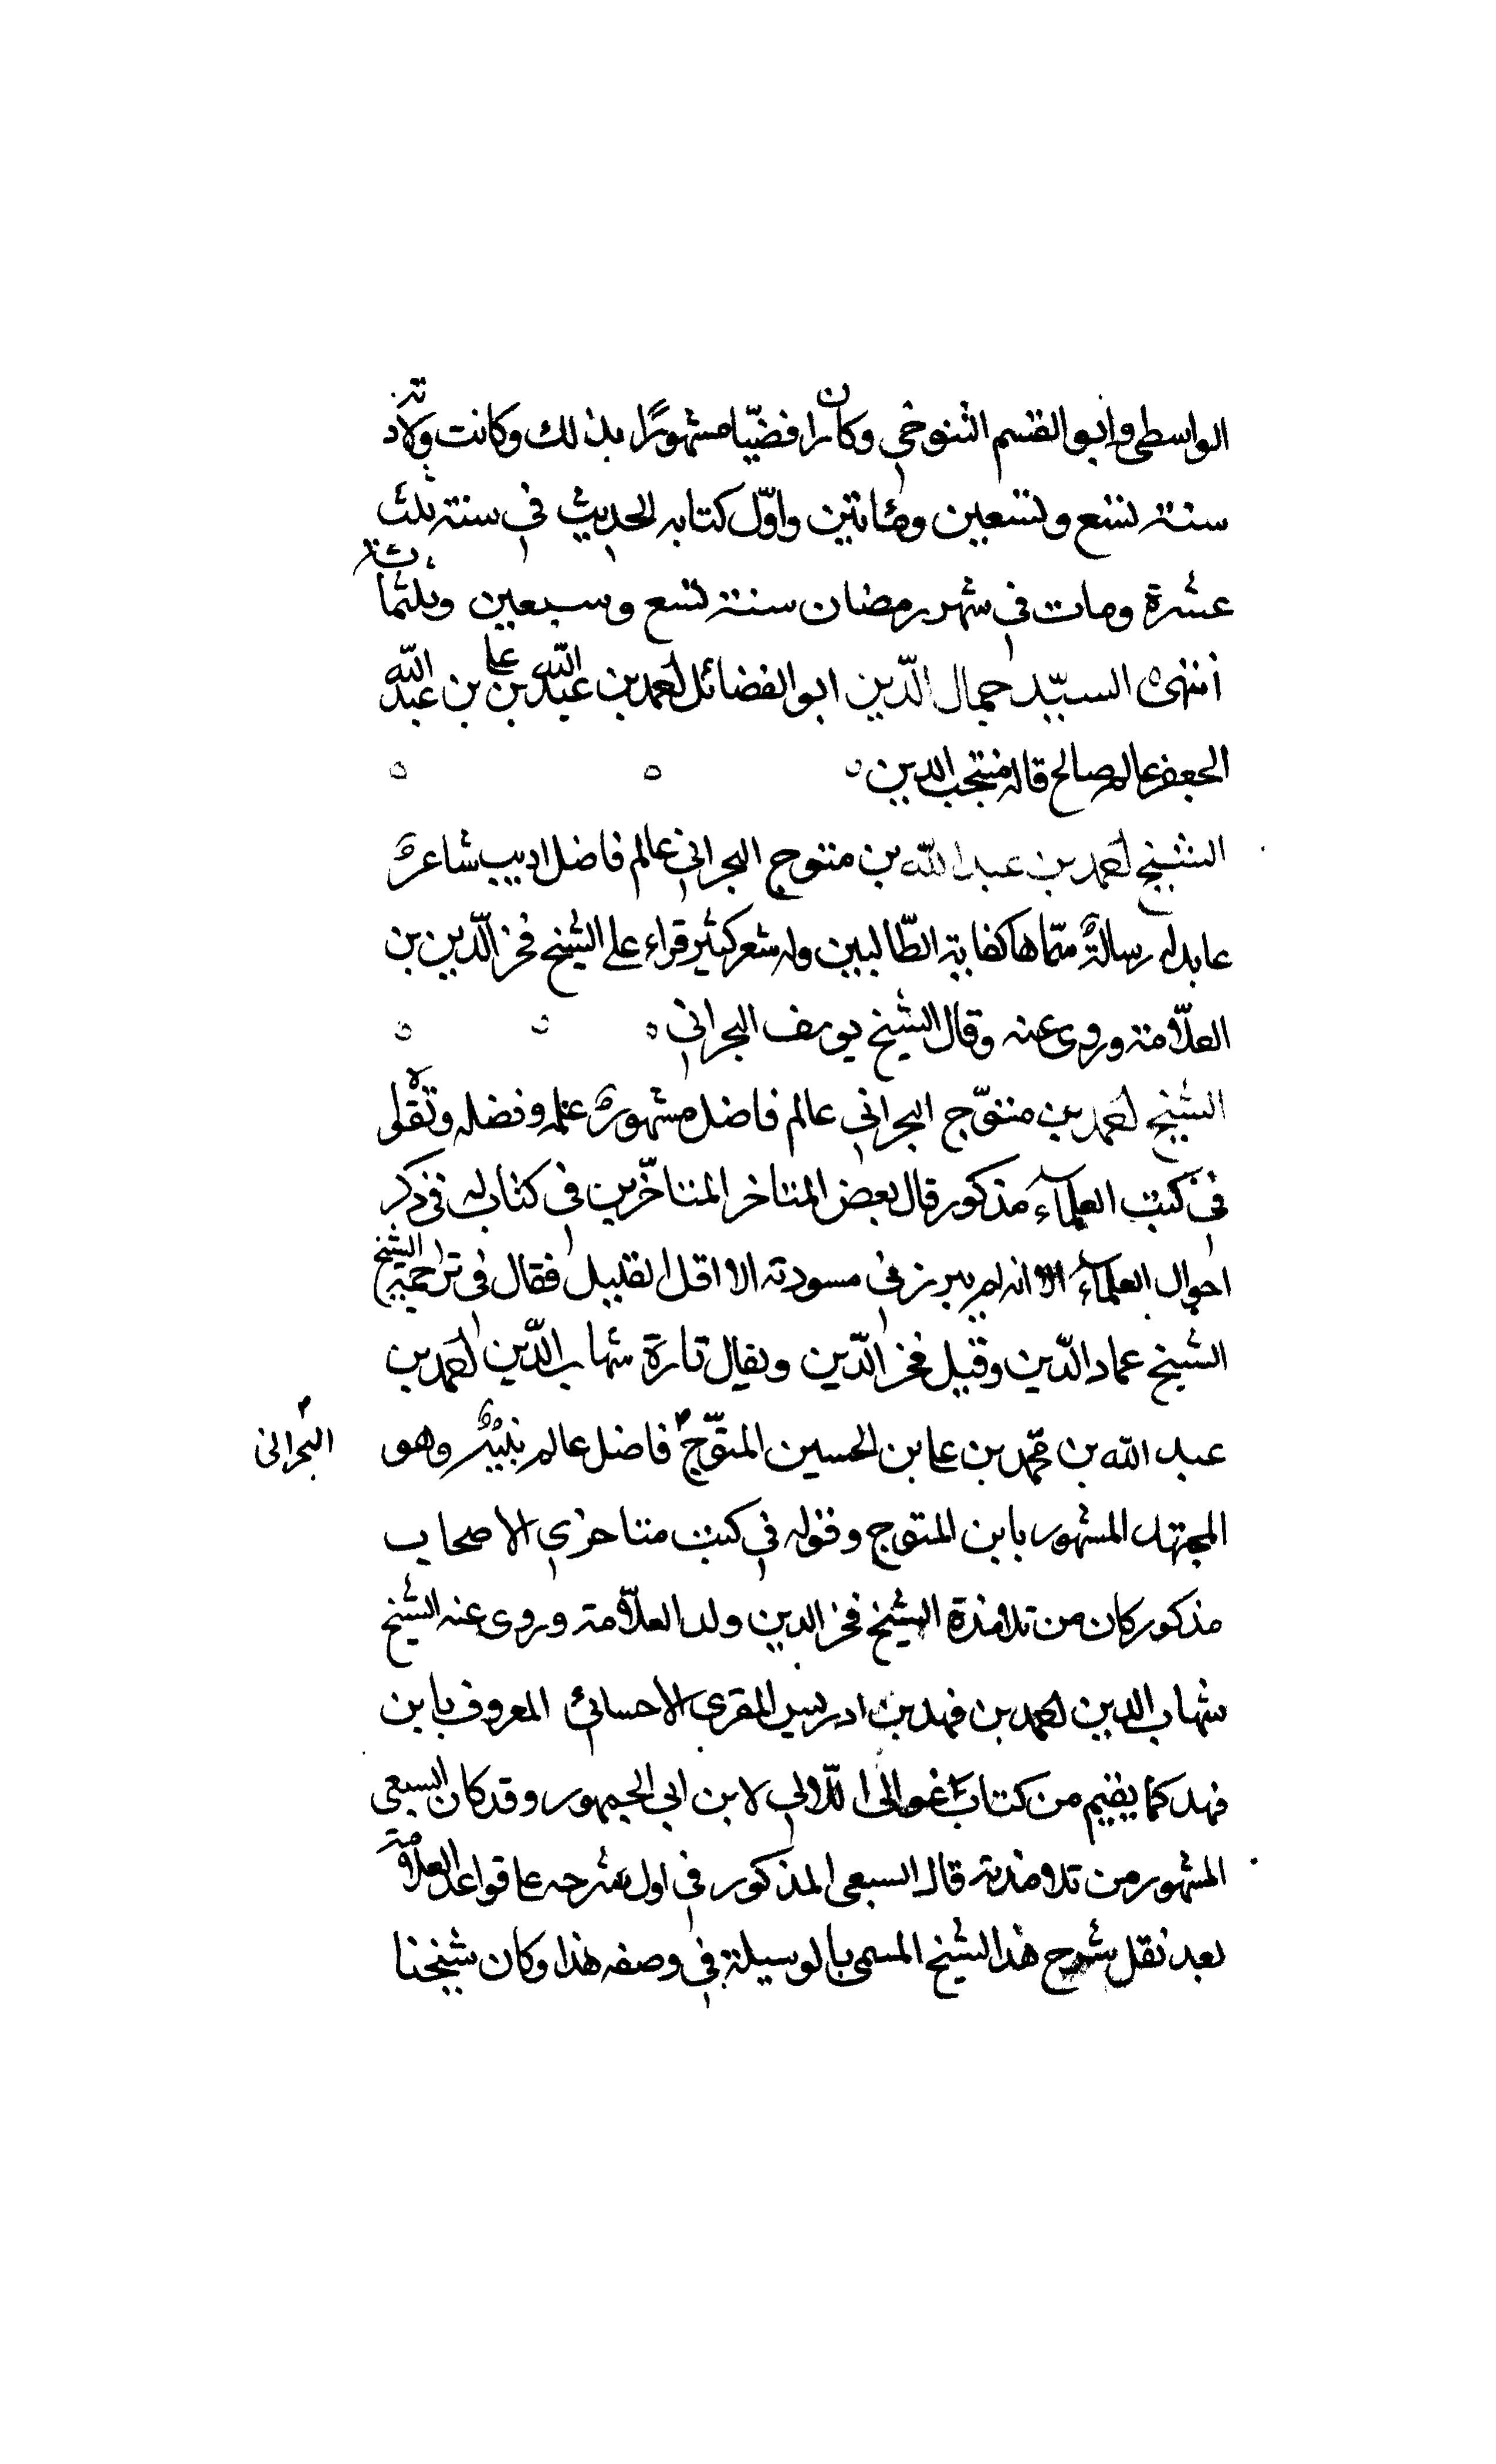 الواسطى وابو القسم التنوخى وكان رافضيّا مشهورًا بذلك وكانت ولادته
سنة تسع وتسعين ومائتين واوّل كتابه الحديث فى سنة ثلث
عشرة ومات فى شهر رمضان سنة تسع وسبعين وثلثمائة
انتهى السيّد جمال الدّين ابو الفضائل احمد بن عبد الله بن على بن عبد الله
الجعفر عالم صالح قاله منتجب الدين
الشيخ احمد بن عبد الله بن متوج البحرانى عالم فاضل اديب شاعر
عابد له رسالة سمّاها كفاية الطّالبين وله شعر كثير قراء على الشيخ فخر الدّين بن
العلّامة وروى عنه وقال الشيخ يوسف البحرانى
الشيخ احمد بن متوّج البحرانى عالم فاضل مشهور علمه وفضله وتقواه
فى كتب العلمآء مذكور قال بعض المتاخر المتاخّرين فى كتاب له فى ذكر
احوال العلمآء الا انه لم يبرز فى مسودته الا اقل القليل فقال فى ترجمة الشيخ
الشيخ عماد الدّين وقيل فخر الدّين ويقال تارة شهاب الدّين احمد بن
عبد الله بن محمد بن على بن الحسين المتوّج فاضل عالم نبيه وهو
البحرانى
المجتهد المشهور بابن المتوج وقوله فى كتب متاخرى الاصحاب
مذكور كان من تلامذة الشيخ فخر الدين ولد العلّامة وروى عنه الشيخ
شهاب الدين احمد بن فهد بن ادريس المقرى الاحسائى المعروف بابن
فهد كما يفهم من كتاب غوالى اللّالى لابن ابى الجمهور وقد كان السبعى
المشهور من تلامذته قال السبعى المذكور فى اول شرحه على قواعد العلّامة
بعد نقل شرح هذا الشيخ المسمى بالوسيلة فى وصفه هذا وكان شيخنا